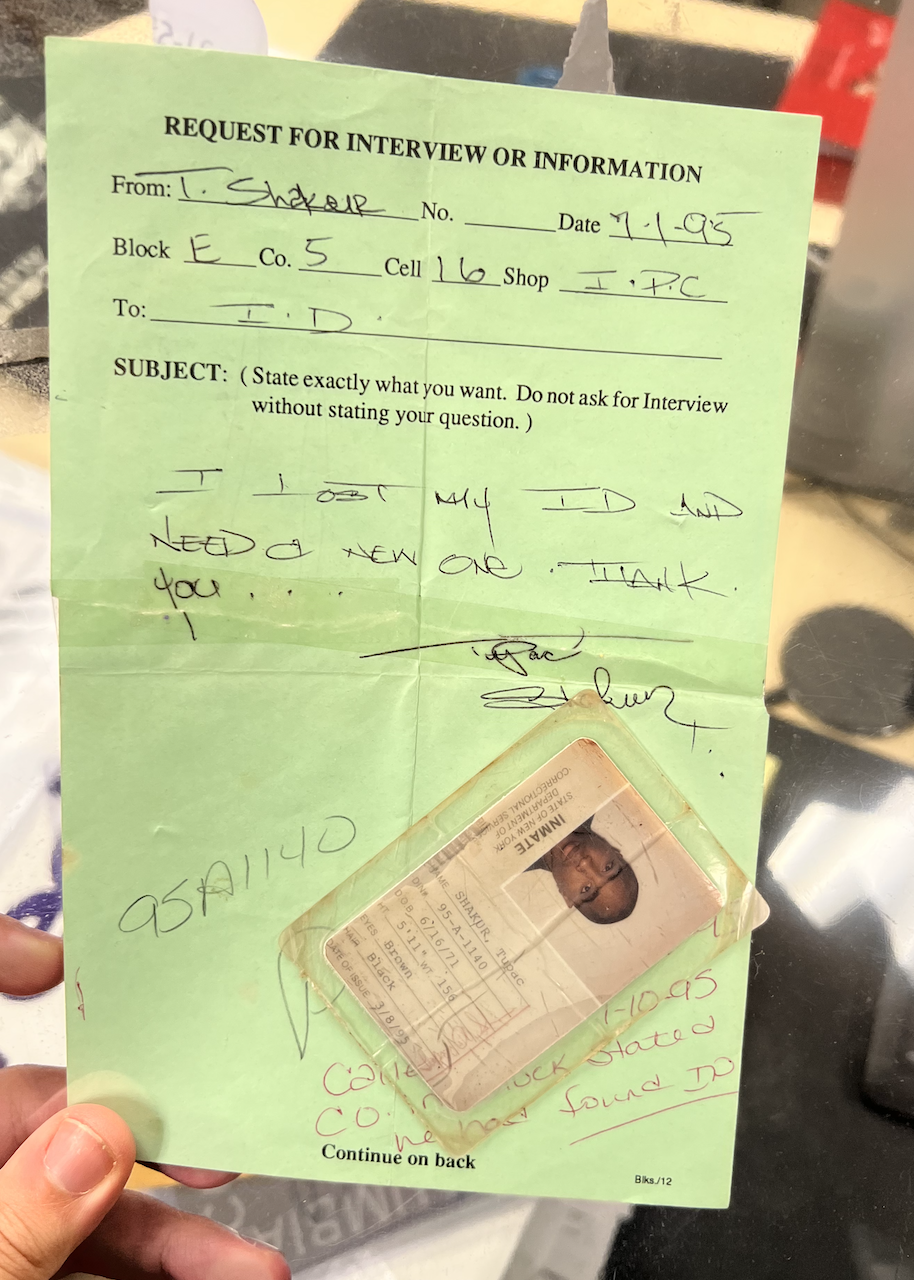 REQUEST FOR INTERVIEW OR INFORMATION
From: T. Shakur No. Date 7-1-95
Block E Co. 5 Cell 16 Shop I.P.C
To: I.D.
SUBJECT: ( State exactly what you want. Do not ask for Interview
without stating your question. )
I LOST MY ID AND
NEED A NEW ONE. THANK
you . . .
Tupac
Shakur T.
95A1140
STATE OF NEW YORK
DEPARTMENT OF
CORRECTIONAL SERVICES
INMATE
NAME SHAKUR, Tupac
DIN# 95-A-1140
D.O.B. 6/16/71
HT. 5'11" WT. 156
EYES Brown
HAIR Black
DATE OF ISSUE 3/8/95
1-10-95
stated
CO he had found ID
Continue on back
Blks./12